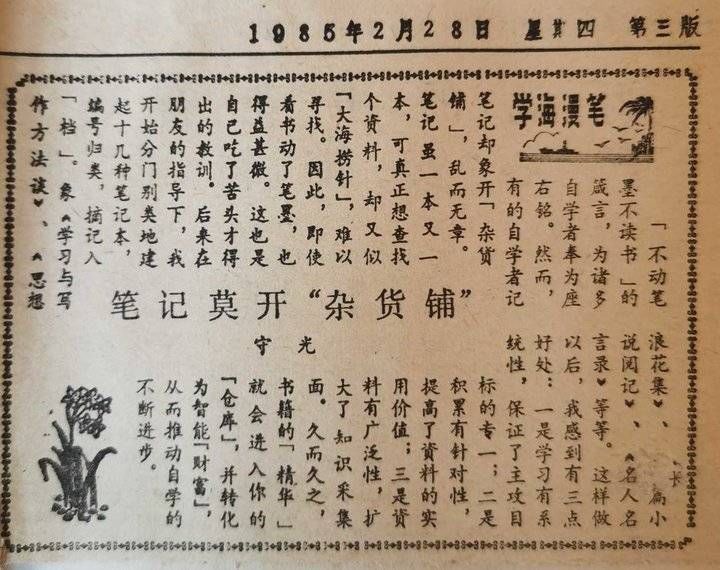 1985年2月28日 星期四 第三版
学海漫笔
笔记莫开“杂货铺”
守光
「不动笔
墨不读书」的
箴言，为诸多
自学者奉为座
右铭。然而，
有的自学者记
笔记却象开「杂货
铺」，乱而无章。
笔记虽一本又一
本，可真正想查找
个资料，却又似
「大海捞针」，难以
寻找。因此，即使
看书动了笔墨，也
得益甚微。这也是
自己吃了苦头才得
出的教训。后来在
朋友的指导下，我
开始分门别类地建
起十几种笔记本，
编号归类，摘记入
「档」。象《学习与写
作方法谈》、《思想
浪花集》、《长篇小
说阅记》、《名人名
言录》等等。这样做
以后，我感到有三点
好处：一是学习有系
统性，保证了主攻目
标的专一；二是
积累有针对性，
提高了资料的实
用价值；三是资
料有广泛性，扩
大了知识采集
面。久而久之，
书籍的「精华」
就会进入你的
「仓库」，并转化
为智能「财富」，
从而推动自学的
不断进步。